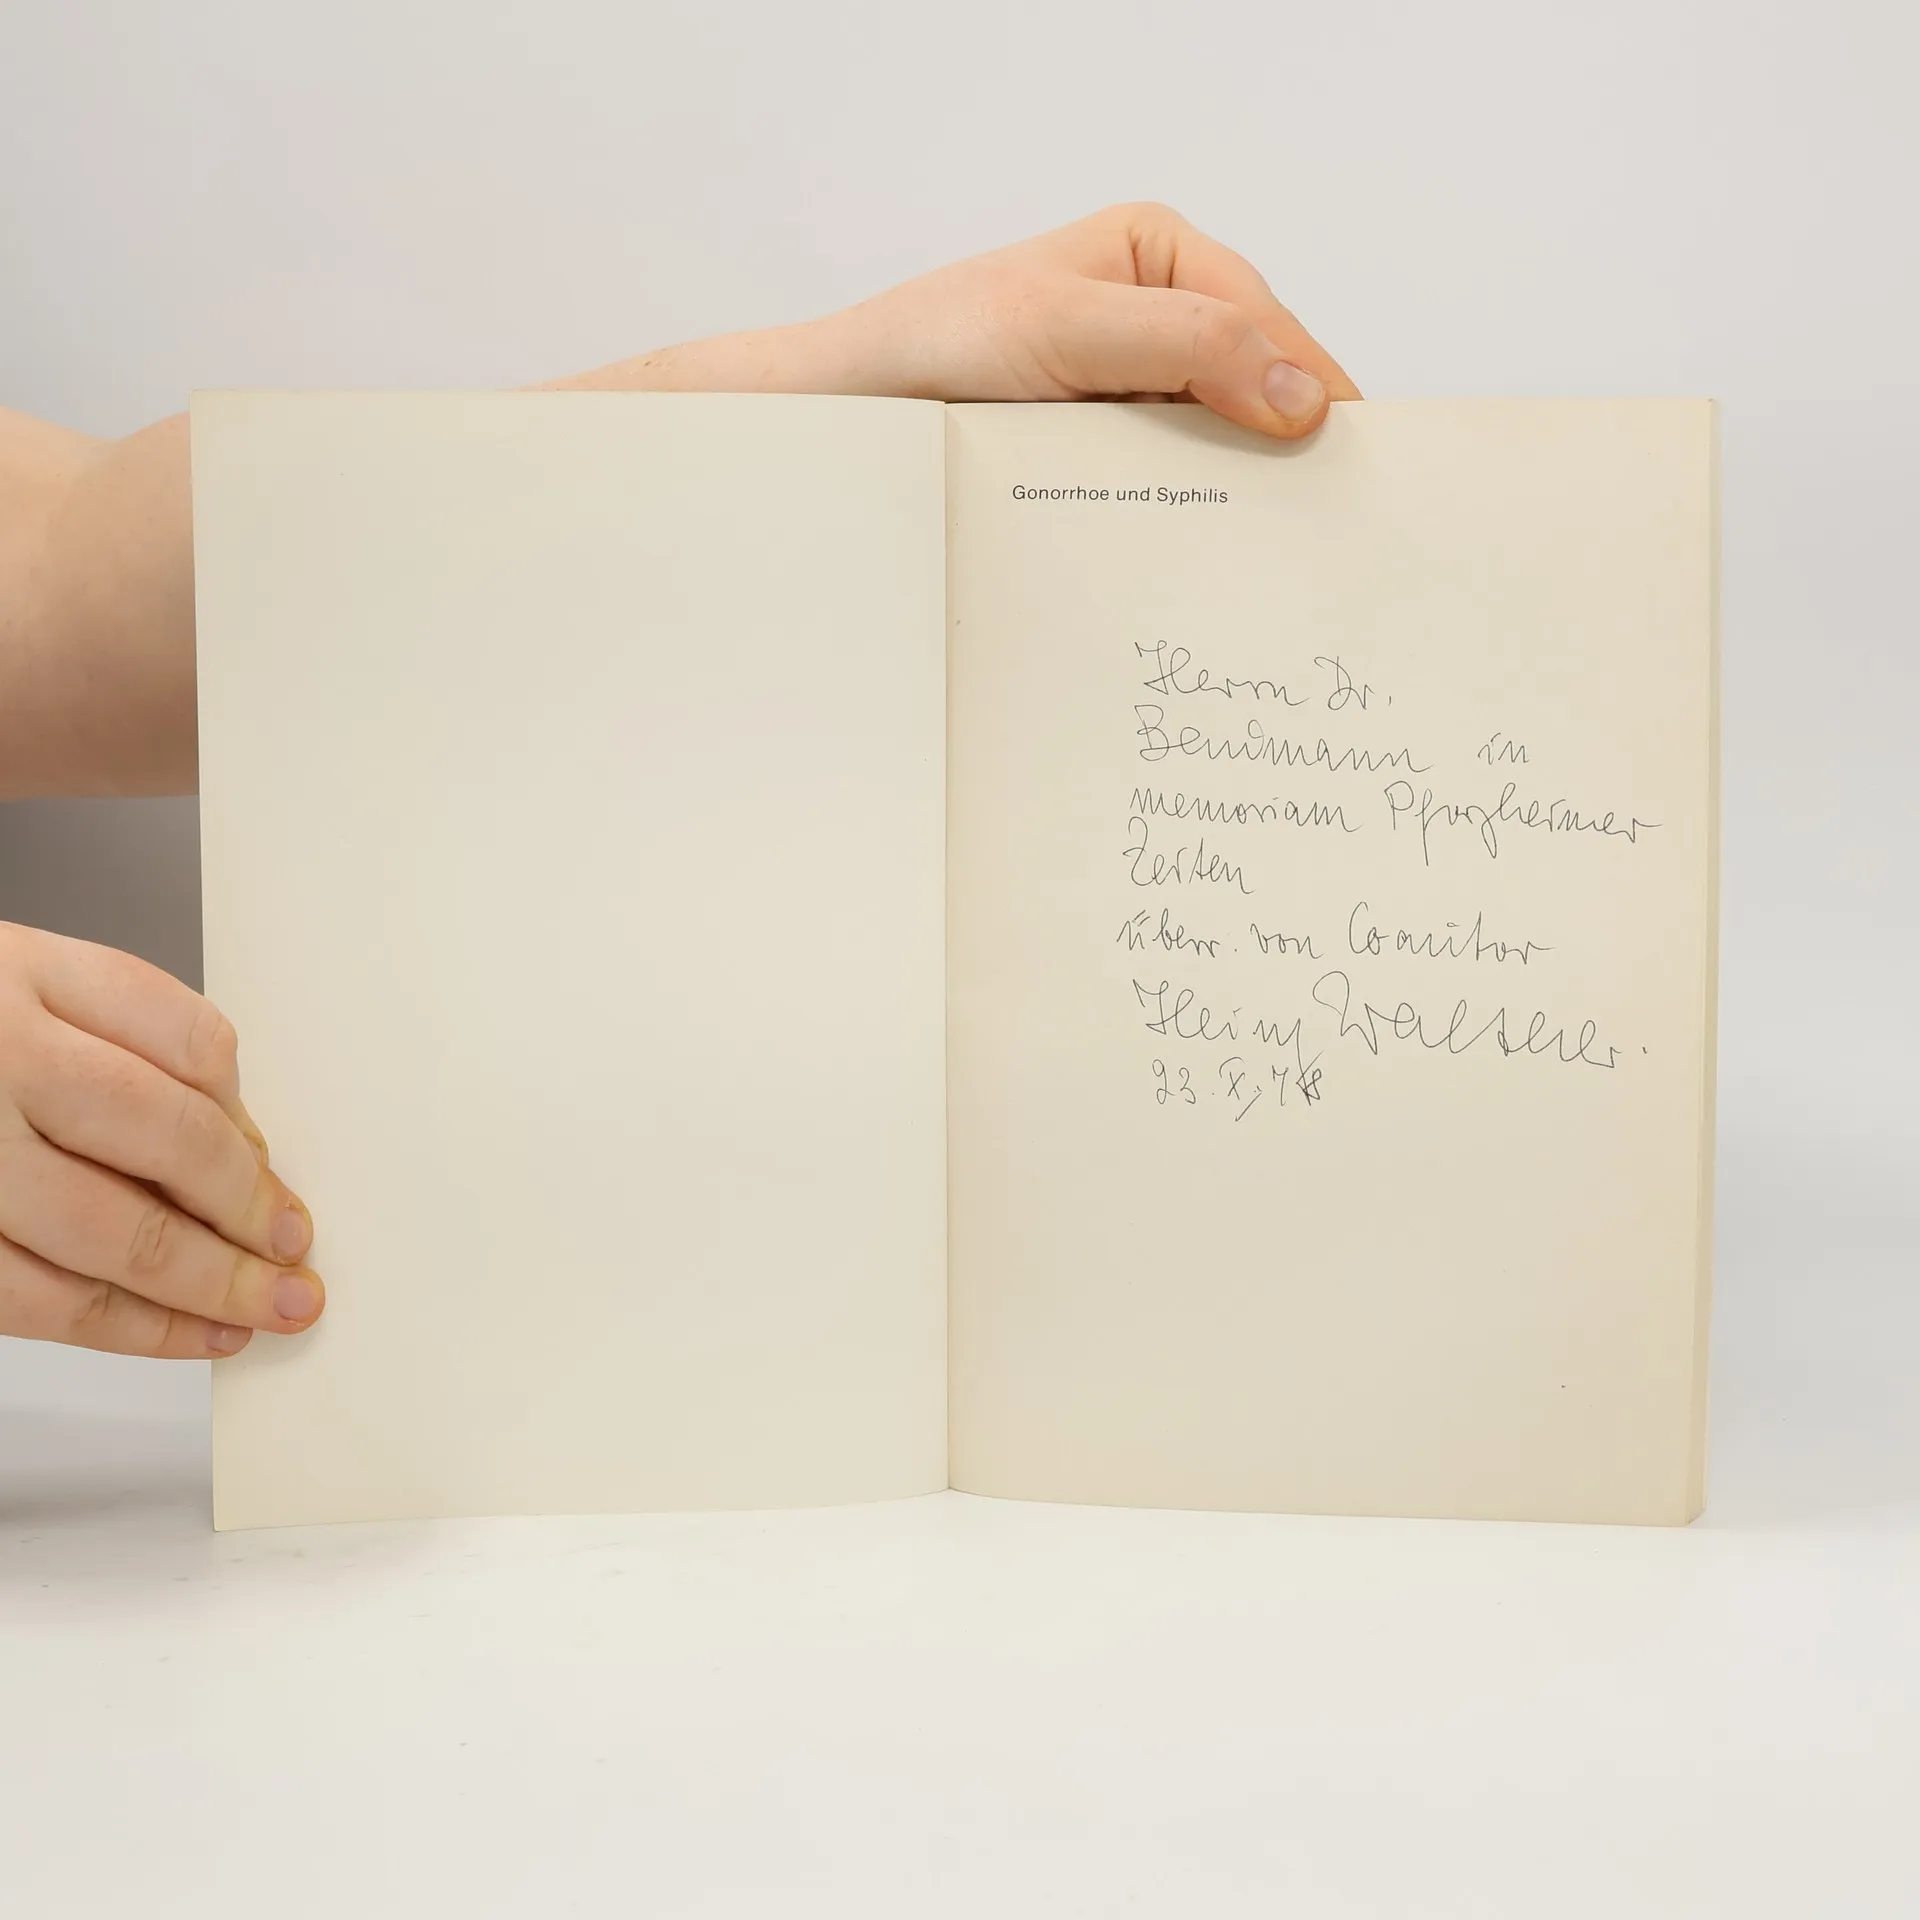 Gonorrhoe und Syphilis
Herrn Dr.
Bendmann in
memoriam Pforzheimer
Zeiten
überr. von Coautor
Heinz Walther.
23.X.78